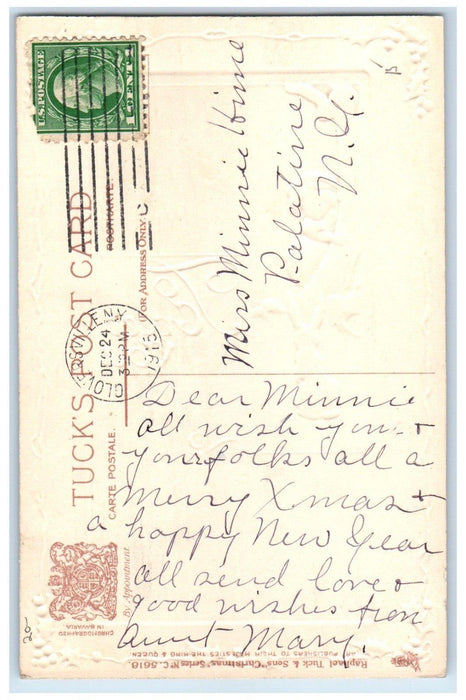 U.S. POSTAGE
1 CENT 1
GLOVERSVILLE N.Y.
DEC 24
3 30 PM
1915
TUCK'S POST CARD
CARTE POSTALE.
POSTKARTE.
(FOR ADDRESS ONLY.)
Miss Minnie Hime
Palatine
N.Y.
Dear Minnie
all wish you +
your folks all a
Merry Xmas +
a happy New Year
all send love +
good wishes from
Aunt Mary.
By Appointment
CHROMOGRAPHED
IN BAVARIA
Raphael Tuck & Sons' "Christmas" Series No C. 5618.
ART PUBLISHERS TO THEIR MAJESTIES THE KING & QUEEN
15
20-